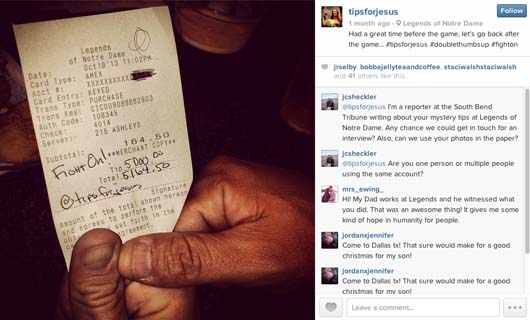 Legends
of Notre Dame
Oct19'13 11:02PM
Date:
Card Type: AMEX
Acct #: XXXXXXXXXXX
Card Entry: KEYED
Trans Type: PURCHASE
Trans Key:
Auth Code: 108345
Check: 4014
Server: 215 ASHLEYS
Subtotal: 164.50
**MERCHANT COPY**
Fight On!
Tip 5,000.00
Total: 5,164.50
@tipsforjesus
Signature
Amount of the total shown hereon
and agrees to perform the
set forth in the
agreement.
tipsforjesus
Follow
1 month ago · Legends of Notre Dame
Had a great time before the game, let's go back after
the game... #tipsforjesus #doublethumbsup #fighton
jrselby, bobbajellyteeandcoffee, staciwalshstaciwalsh
and 41 others like this.
jcsheckler
@tipsforjesus I'm a reporter at the South Bend
Tribune writing about your mystery tips at Legends of
Notre Dame. Any chance we could get in touch for an
interview? Also, can we use your photos in the paper?
jcsheckler
@tipsforjesus Are you one person or multiple people
using the same account?
mrs_ewing_
Hi! My Dad works at Legends and he witnessed what
you did. That was an awesome thing! It gives me some
kind of hope in humanity for people.
jordanxjennifer
Come to Dallas tx! That sure would make for a good
christmas for my son!
jordanxjennifer
Come to Dallas tx! That sure would make for a good
christmas for my son!
Leave a comment...